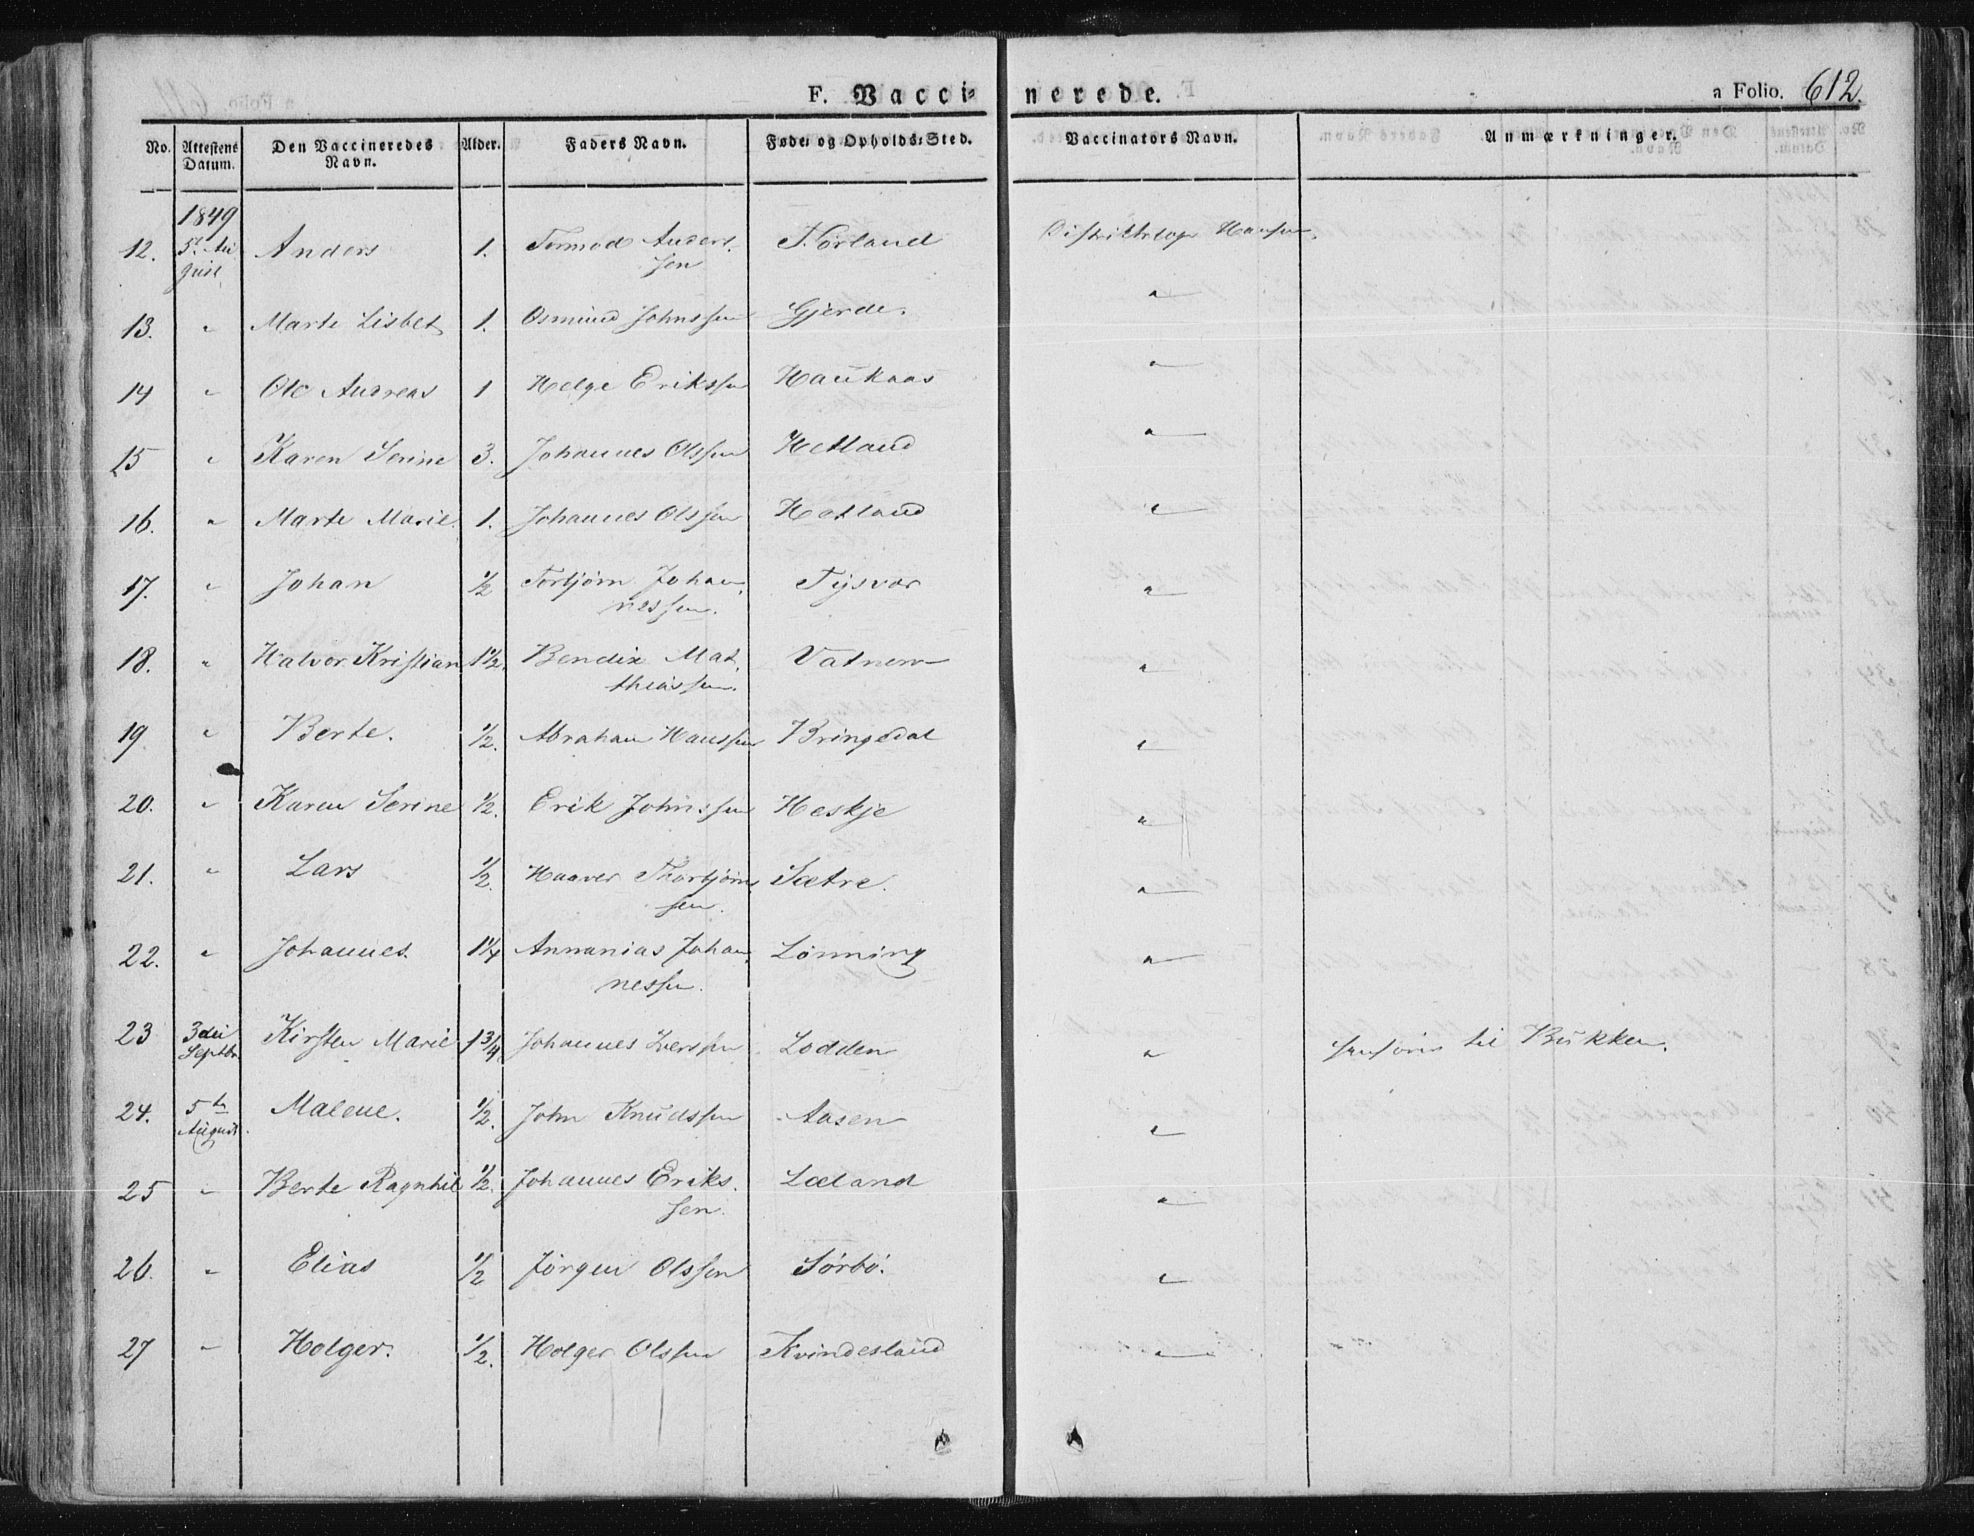 F. Vacci= nerede. a Folio. 612.
No. Attestens Datum. Den Vaccineredes Navn. Alder. Faders Navn. Føde= og Opholds=Sted. Vaccinators Navn. Anmærkninger.
1849
12. 5te Au Anders 1. Tormod Anders- Norland Hansen.
gust, sen
13. " Marte Lisbet 1. Osmund Johnssen Gjerde. "
14 " Ole Andreas 1 Helge Erikssen Haukaas "
15 " Karen Serine 3. Johannes Olssen Hetland "
16. " Marte Marie 1. Johannes Olssen Hatland "
17. " Johan 1/2 Torbjørn Johan- Tysvær "
nessen.
18. " Halvor Kristian 1 1/2. Bendix Mat- Vatnem "
thiassen.
19 " Berte. 1/2. Abraham Hanssen Bringedal "
20. " Karen Serine 1/2. Erik Johnssen Heskje "
21. " Lars 1/2. Haaver Thorbjørns Sætre. "
sen.
22. " Johannes. 1 1/4 Annanias Johan- Lønning "
nessen.
23 3die Kirsten Marie 1 3/4 Johannes Iverssen Lodden " til Bukken.
Septbr
24. 5te Malene. 1/2. John Knudssen Aasen "
August.
25 " Berte Ragnhil 1/2. Johannes Eriks- Læland "
sen.
26. " Elias 1/2 Jörgen Olssen Sørbø. "
27 " Holger. 1/2. Holger Olssen Kvindesland "